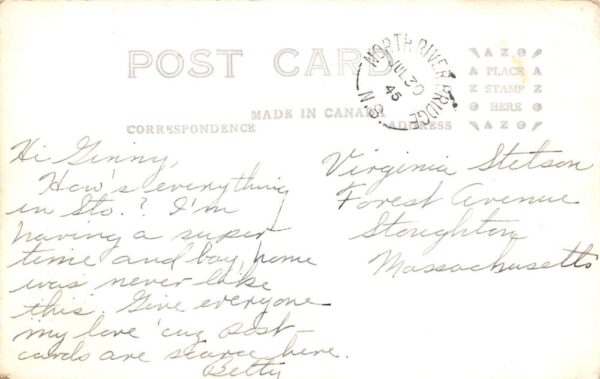 POST CARD
NORTH RIVER BRIDGE
JUL 30
45
N.S.
AZO
PLACE
STAMP
HERE
AZO
MADE IN CANADA
CORRESPONDENCE
ADDRESS
Hi Ginny,
How's everything
in Sto.? I'm
having a super
time and boy, home
was never like
this. Give everyone
my love 'cuz post-
cards are scarce here.
Betty
Virginia Stetson
Forest Avenue
Stoughton
Massachusetts